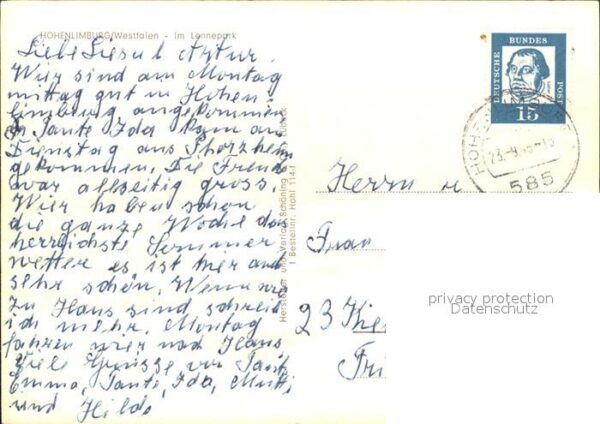 HOHENLIMBURG/Westfalen - Im Lennepark
Liebe Liesel u Artur.
Wir sind am Montag
mittag gut in Hohen
limburg angekommen
Tante Ida kam am
Dienstag aus Pforzheim
gekommen. Die Freude
war allseitig gross.
Wir haben schon
die ganze Woche das
herrlichste Sommer
wetter es ist hier auch
sehr schön. Wenn wir
zu Haus sind, schreib
ich mehr. Montag
fahren wir nach Haus
Viele Grüsse von Tante
Emma, Tante, Ida, Mutti,
und Hilde
Hersteller und Verlag Schöning &
1 Bestellnr. Hohl 1141
DEUTSCHE
BUNDES
POST
15
23.-9.
585
Herrn u
Frau
23 Kie
privacy protection
Datenschutz